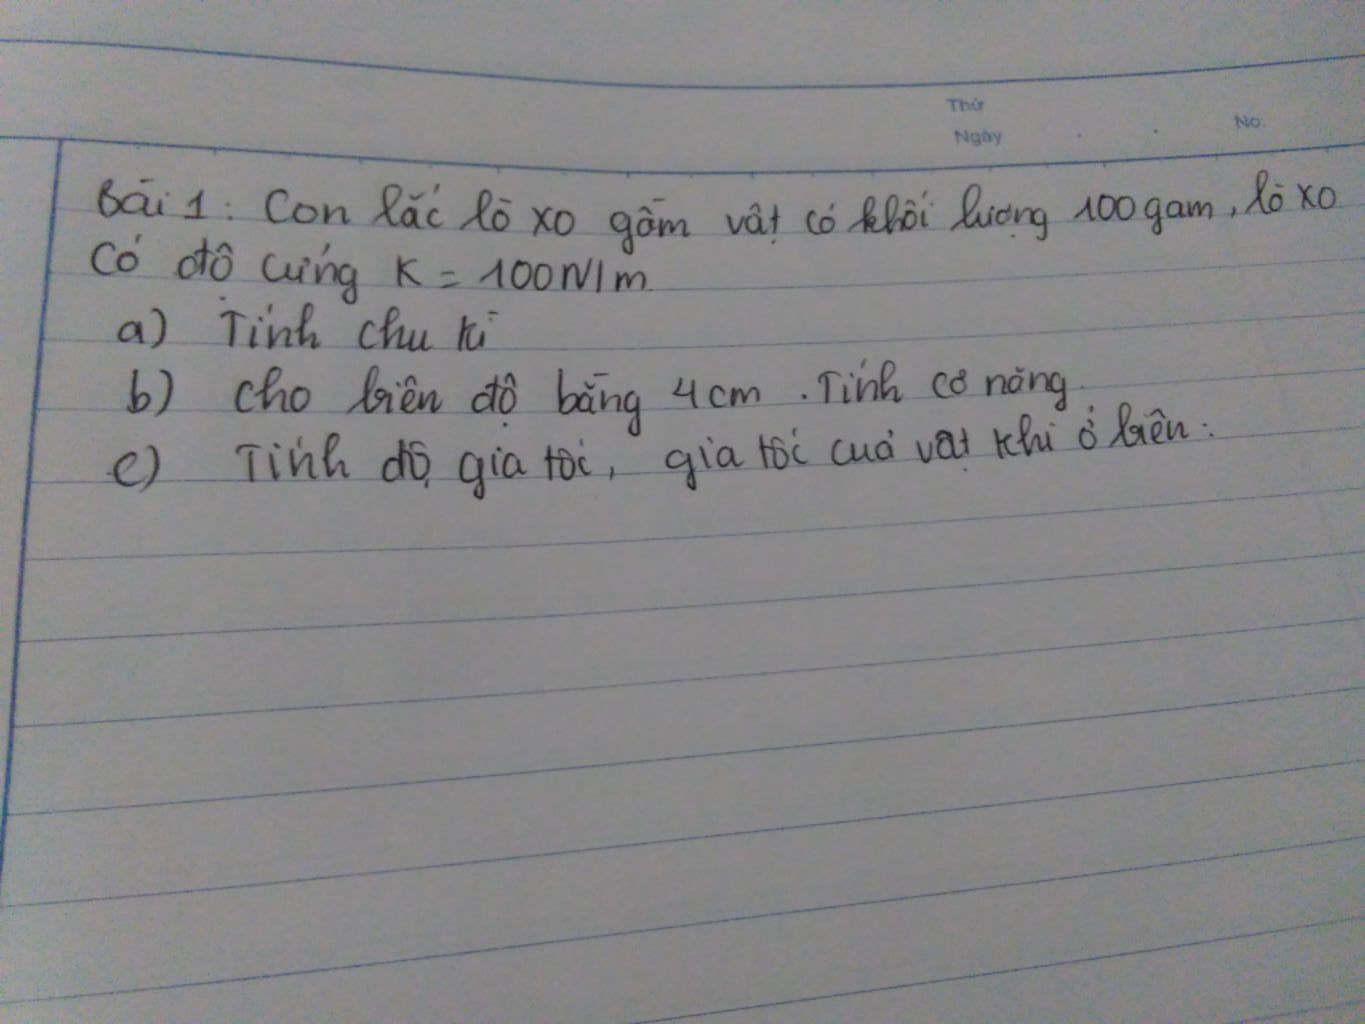 Thứ
Ngày
No.
Bài 1: Con lắc lò xo gồm vật có khối lượng 100gam, lò xo
Có độ cứng K = 100N/m
a) Tính chu kì
b) cho biên độ bằng 4cm. Tính cơ năng.
c) Tính độ gia tốc, gia tốc của vật khi ở biên.